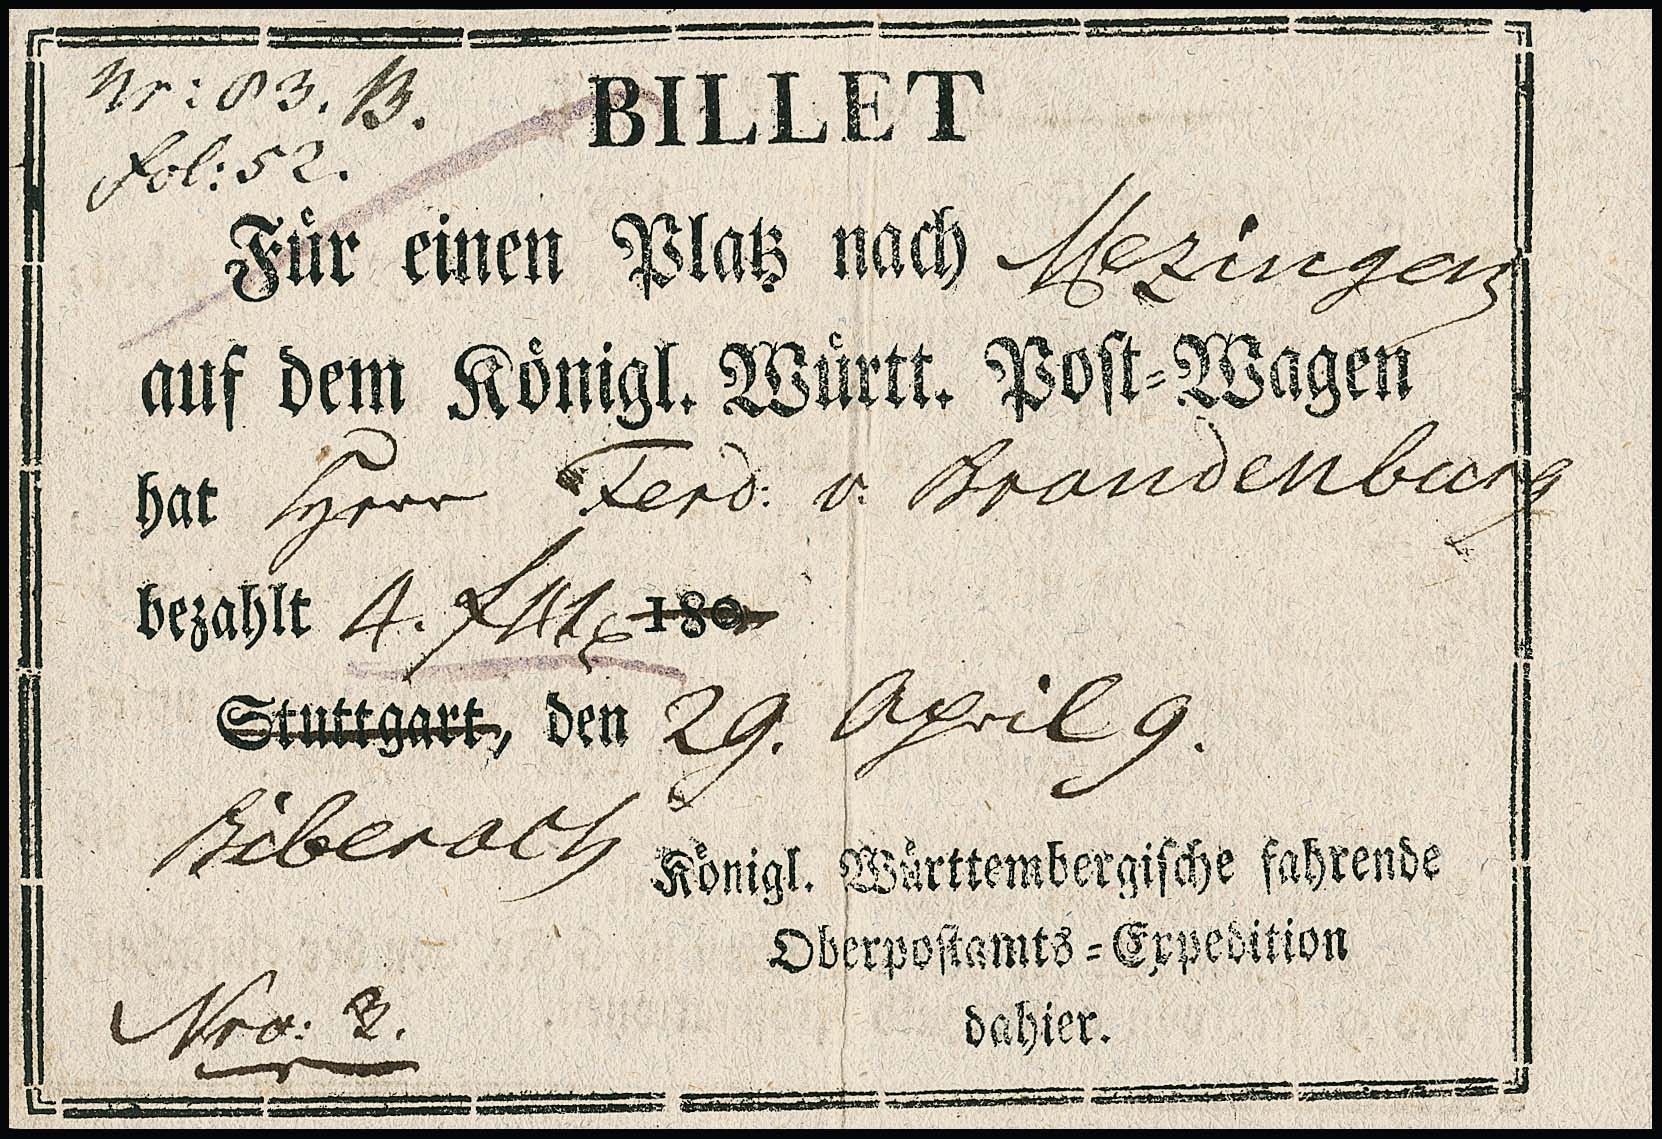 Nr: 83. B.
BILLET
fol: 52.
Für einen Platz nach Mezingen
auf dem Königl. Württ. Post=Wagen
hat Herr Ferd: v. Brandenburg
bezahlt 4. f 180
Stuttgart, den 29. April 9.
Biberach
Königl. Württembergische fahrende
Oberpostamts=Expedition
dahier.
Nro: 3.